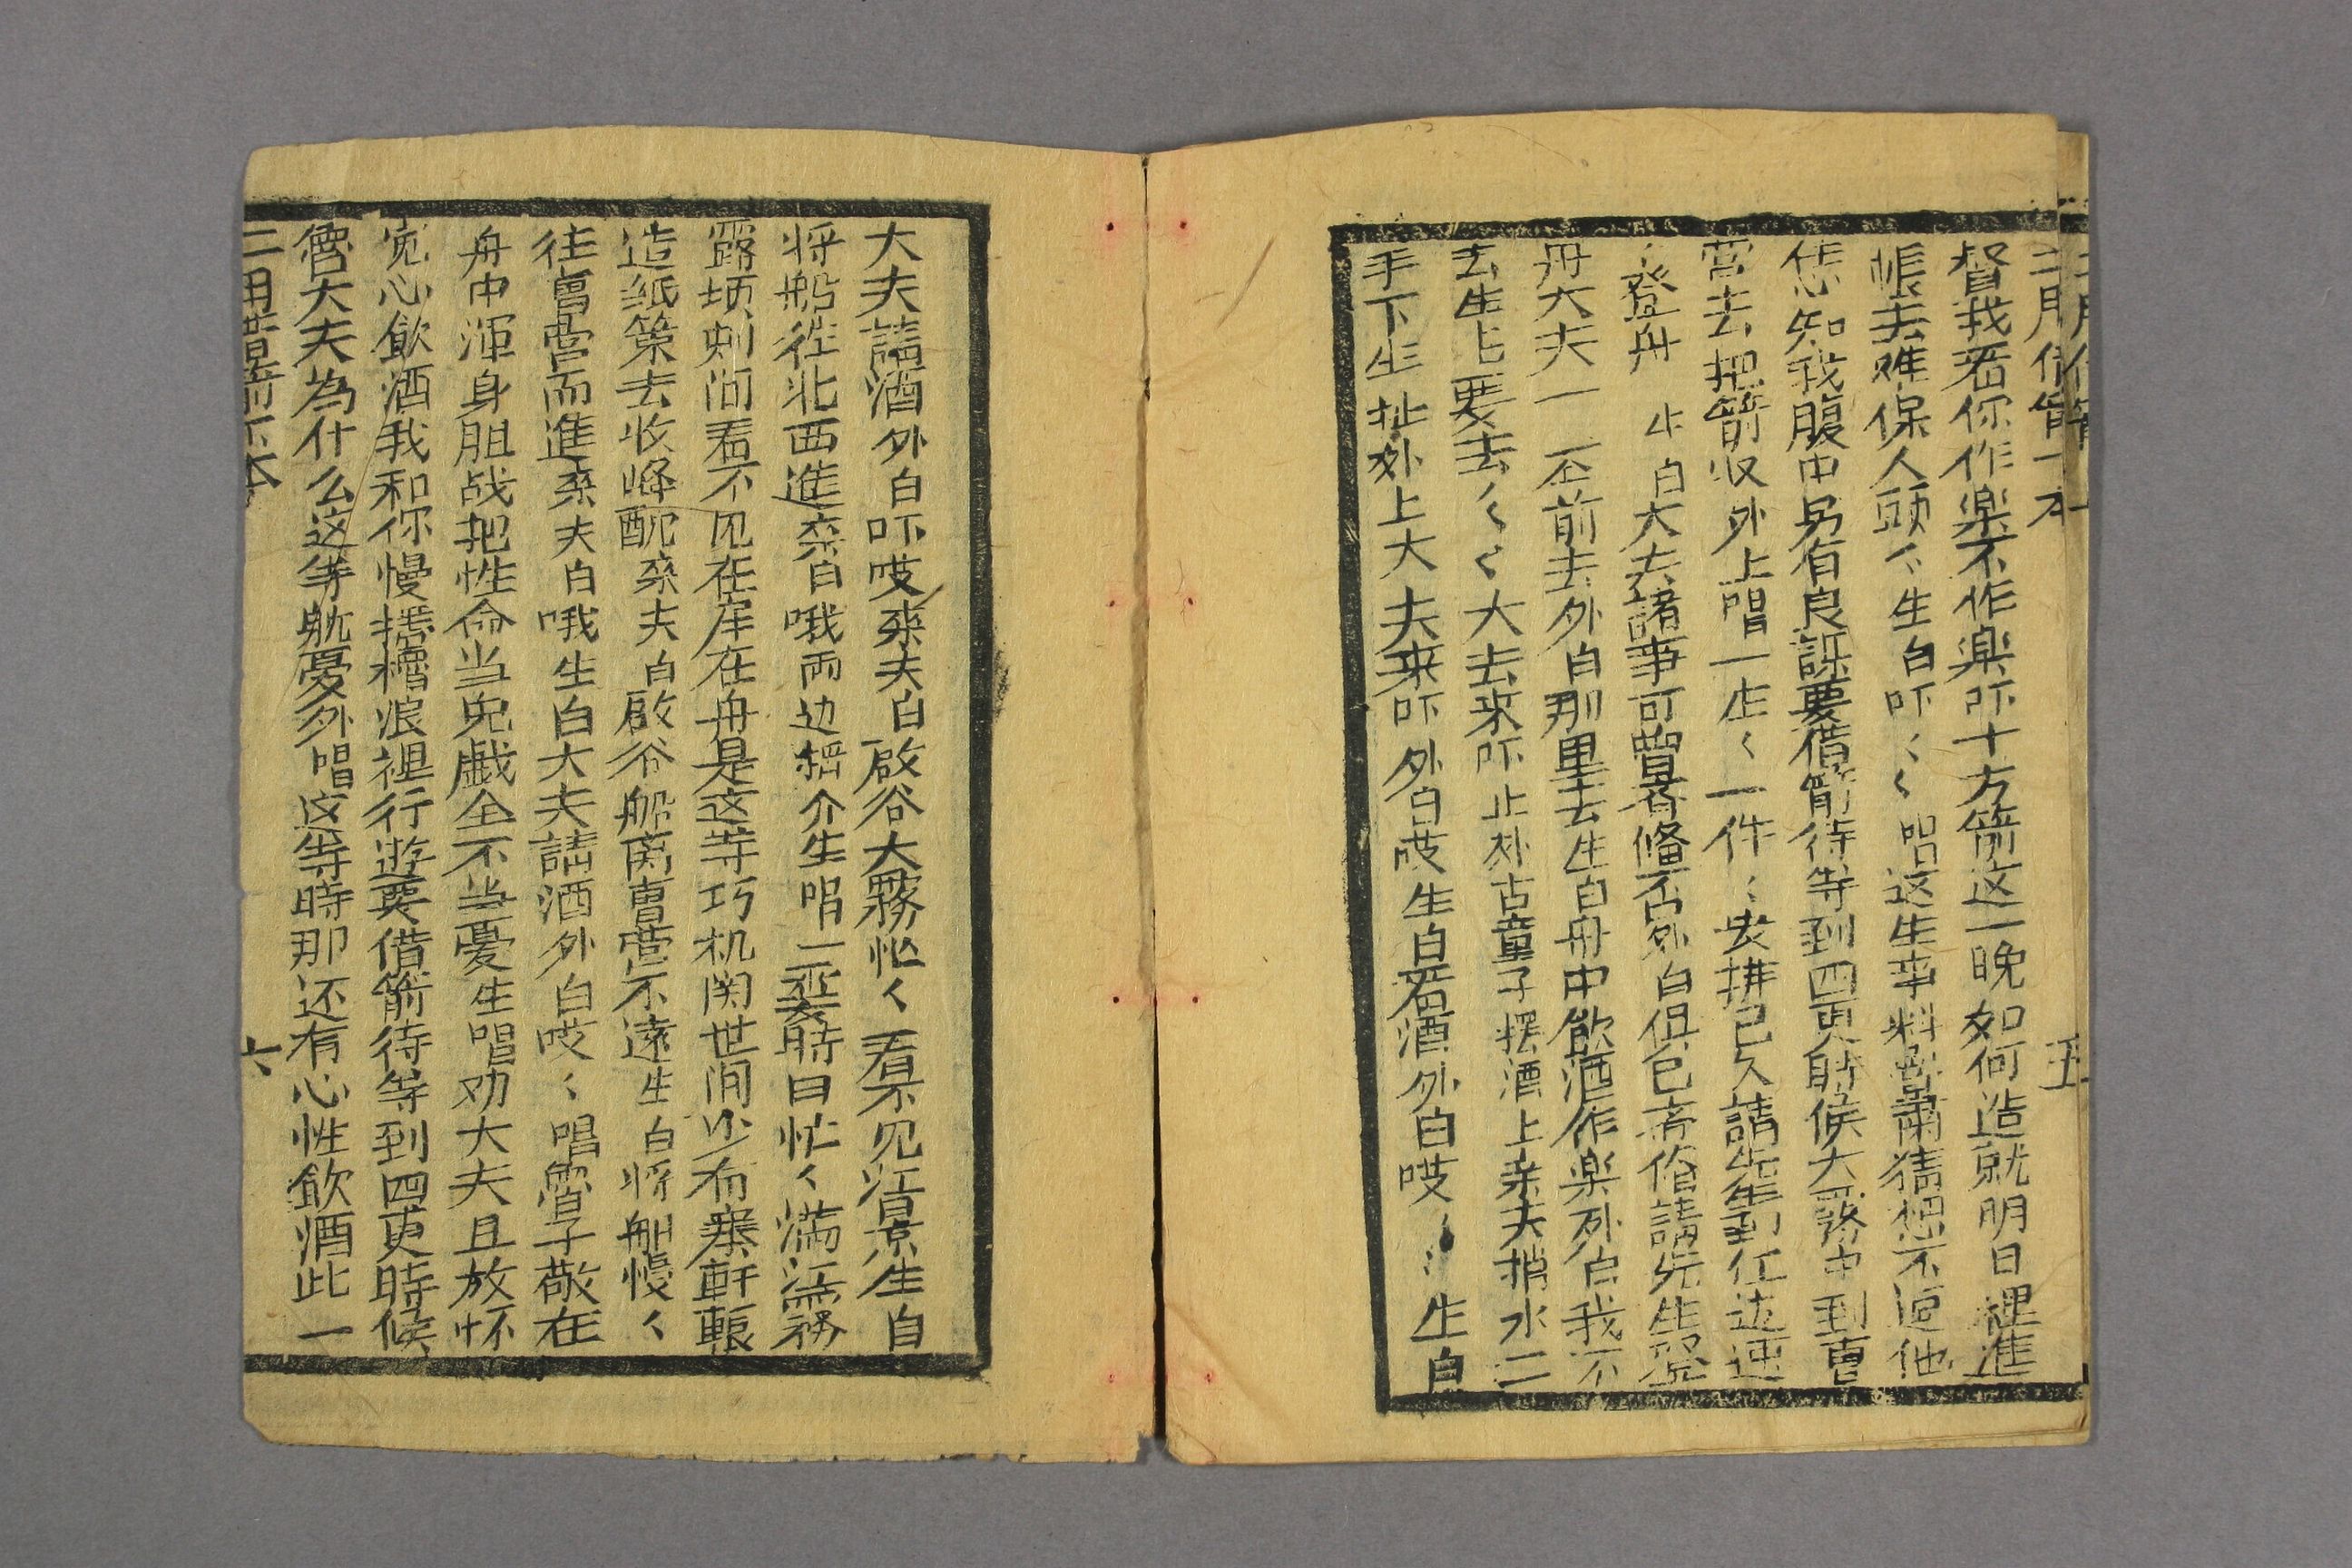 二用借箭下本 五
督我看你作楽不作楽吓十方箭这一晚如何造就明日裡進
帳去难保人頭く生白吓くく唱这生率料魯肅猜想不逅他
恁知我腹中另有良謀要借箭待等到四更時候大霧中到曹
营去把箭収外上唱一庄く一件く安排已久請先生到江边速
く登舟 生白大夫諸事可曾齐俻否外白俱已齐俻請先生登
舟大夫一仝前去外白那里去生白舟中飲酒作楽外白我不
去生上要去くく大夫来吓止外古童子摆酒上来夫捎水二
手下生扯外上大夫来吓外白哎生白看酒外白哎く生白
大夫請酒外白吓哎来夫白啟谷大霧忙く看不见江景生白
将船徃北西進来白哦両边摇介生唱一霎時日忙く满江霧
露埧刺间看不见在岸在舟是这等巧机関世间少有塞軒轅
造紙策去收峰配来夫白啟谷船离曹营不遠生白将船慢く
往曹营而進来夫白哦生白大夫請酒外白哎く唱魯子敬在
舟中渾身胆战把性命当児戯全不当憂生唱劝大夫且放怀
宽心飲酒我和你慢摇櫓浪裡行遊要借箭待等到四更時候
魯大夫為什么这等躭憂外唱这等時那还有心性飲酒此一
二用借箭下本 六